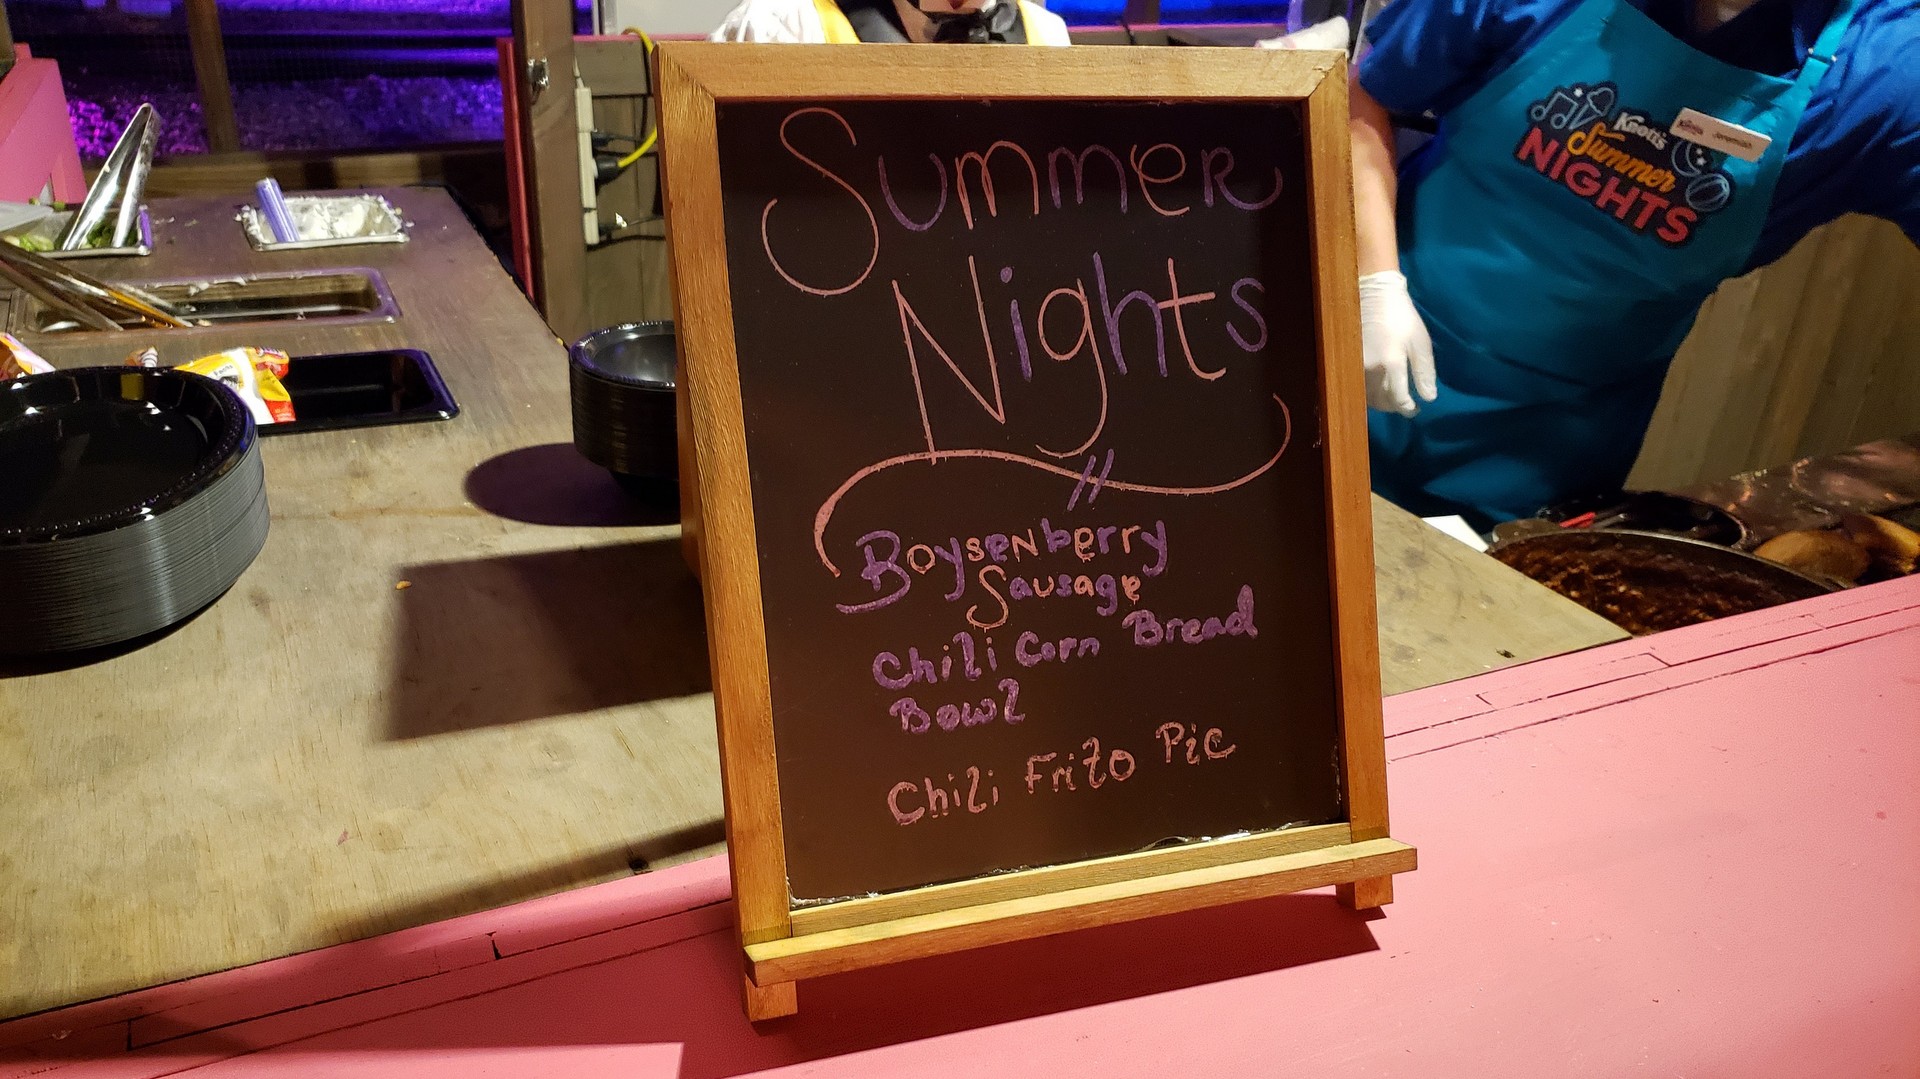 Summer
Nights
Boysenberry
Sausage
Chili Corn Bread
Bowl
Chili Frito Pie
Knott's
Summer
NIGHTS
Knott's Jeremiah